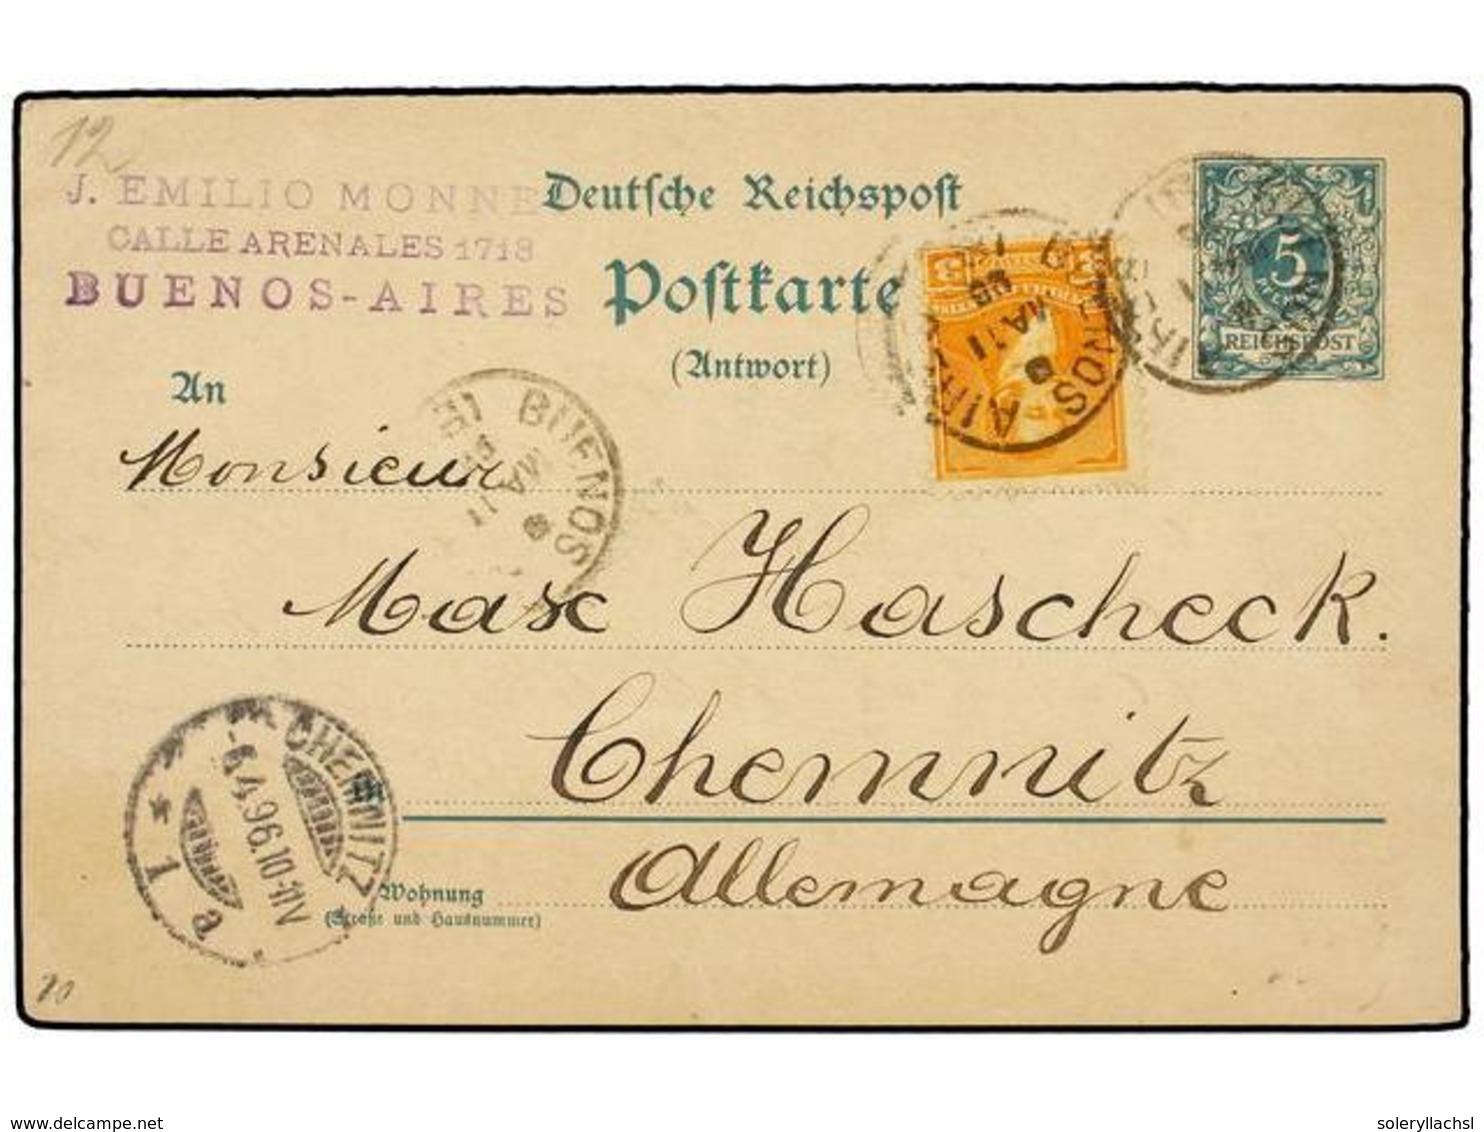 12
J. EMILIO MONNE
CALLE ARENALES 1718
BUENOS-AIRES
Deutsche Reichspost
Postkarte
(Antwort)
5
REICHSPOST
3
BUENOS AIRES
MA 11
BUENOS AIRES
BUENOS
MA 11
An
Monsieur
Max Hascheck.
Chemnitz
Allemagne
Wohnung
(Straße und Hausnummer)
CHEMNITZ
6.4.96.10-11V
* 1 a
www.delcampe.net
soleryllachsl